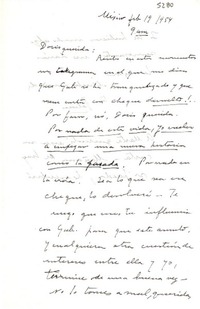 5280
México feb 19/954
9 am
Doris querida:
Recibo en este momento
un telegrama en el que me dices
que Gab. te ha transquitado y que
viene carta con cheque devuelto!.
Por favor, no, Doris querida.
Por nada de esta vida, yo vuelvo
a empezar una nueva historia
como la pasada. Por nada en
la vida. Sea lo que sea ese
cheque, lo devolveré. — Te
ruego que uses tu influencia
con Gab. para que este asunto,
y cualquiera otra cuestión de
intereses entre ella y yo,
termine de una buena vez —
No lo tomes a mal, querida,